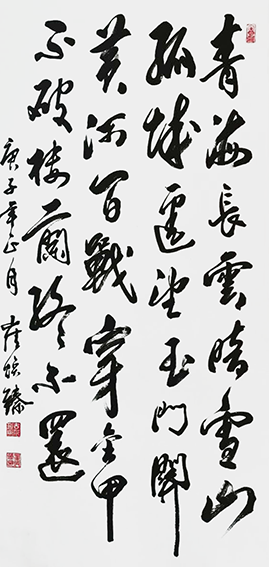 青海長雲暗雪山
孤城遥望玉門關
黄沙百戰穿金甲
不破楼蘭終不還
庚子年正月